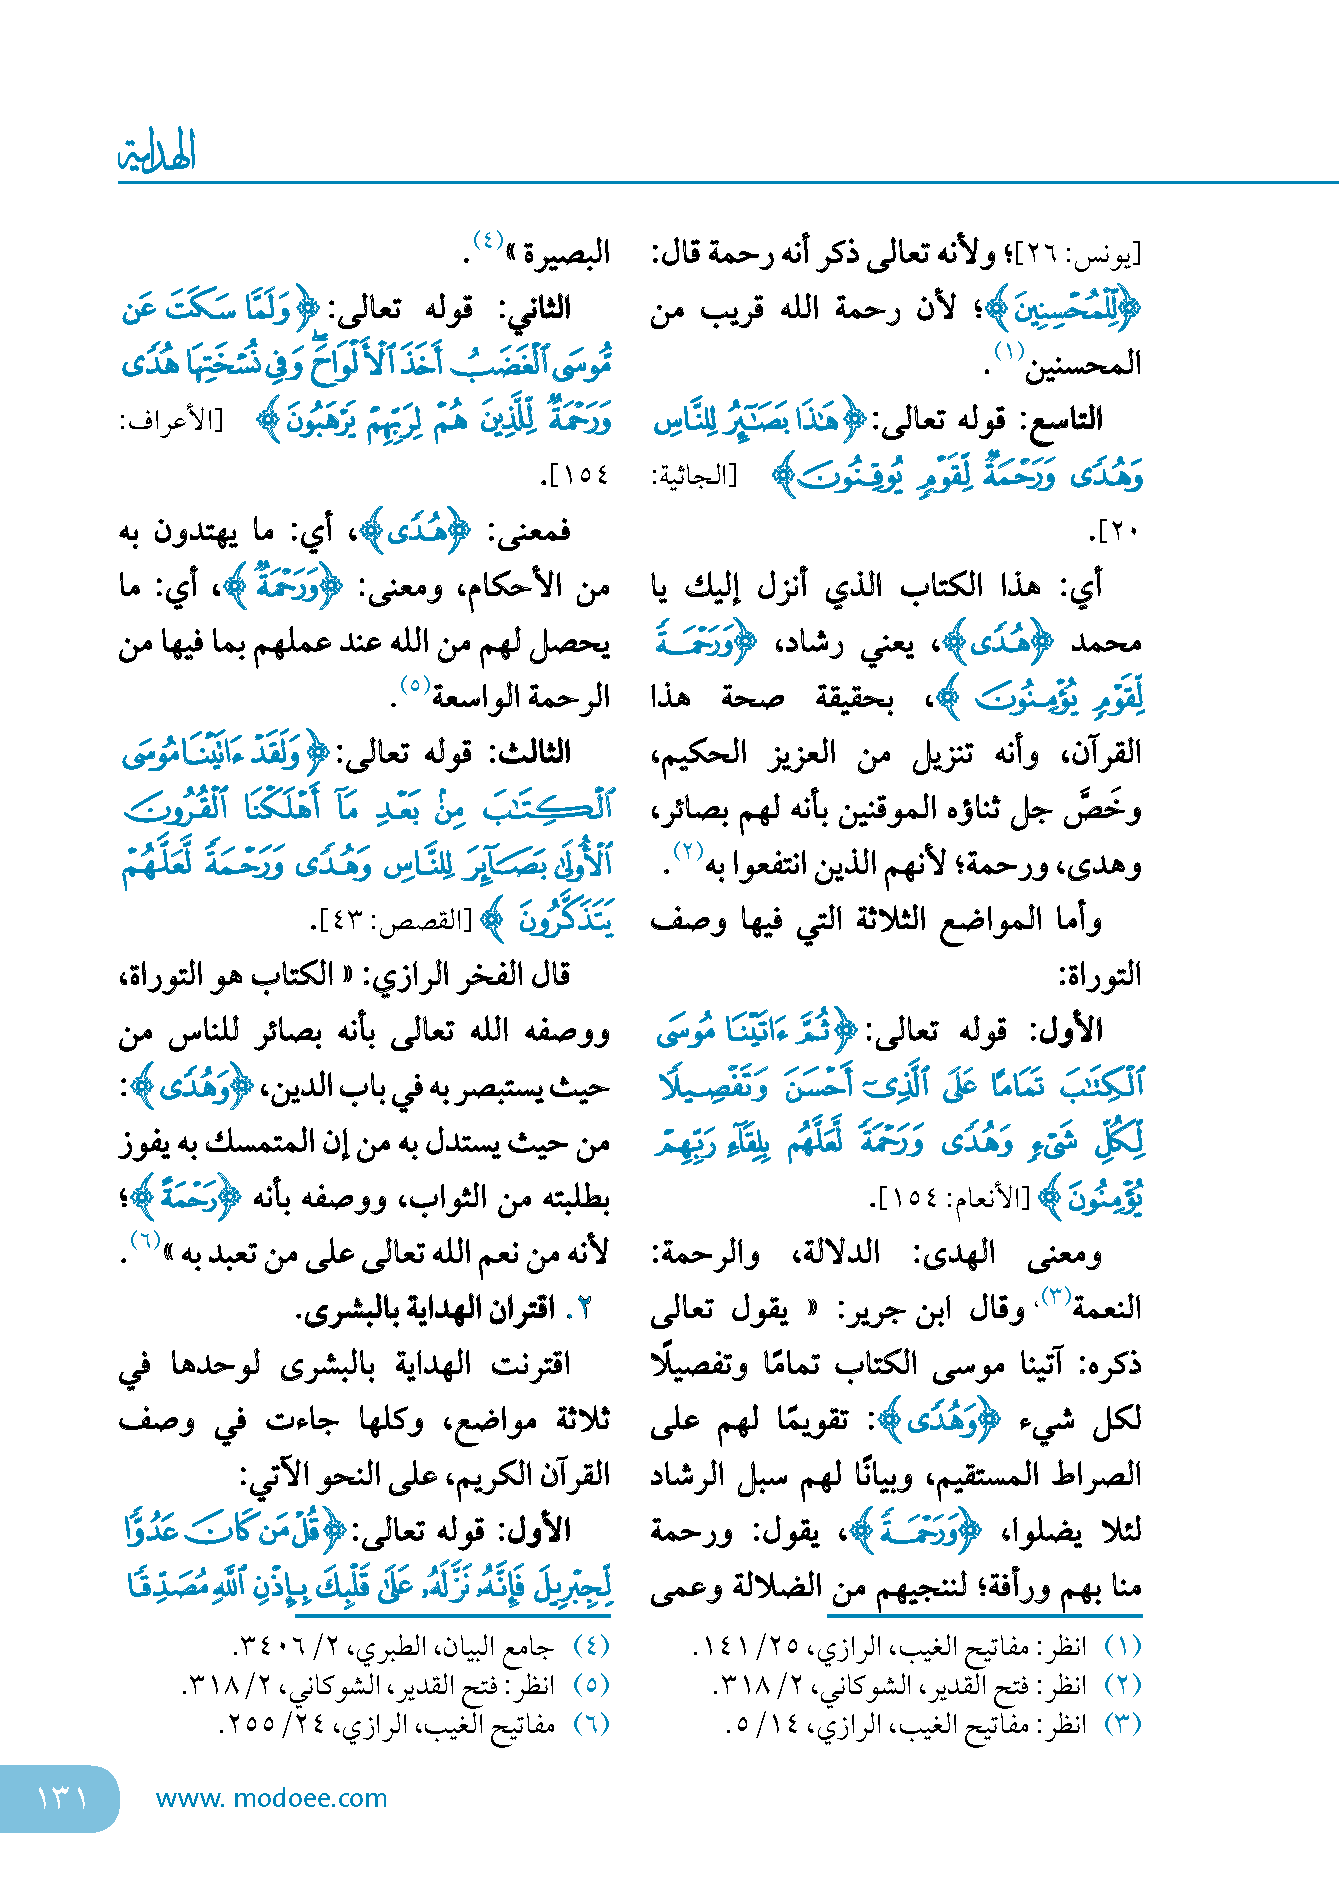 الهداية
[يونس: ٢٦]؛ ولأنه تعالى ذكر أنه رحمة قال:
﴿لِّلْمُحْسِنِينَ﴾؛ لأن رحمة الله قريب من
المحسنين(١).
التاسع: قوله تعالى: ﴿هَٰذَا بَصَٰٓئِرُ لِلنَّاسِ
وَهُدًى وَرَحْمَةٌ لِّقَوْمٍ يُوقِنُونَ﴾ [الجاثية:
٢٠].
أي: هذا الكتاب الذي أنزل إليك يا
محمد ﴿هُدًى﴾، يعني رشاد، ﴿وَرَحْمَةً
لِّقَوْمٍ يُؤْمِنُونَ﴾، بحقيقة صحة هذا
القرآن، وأنه تنزيل من العزيز الحكيم،
وخَصَّ جل ثناؤه الموقنين بأنه لهم بصائر،
وهدى، ورحمة؛ لأنهم الذين انتفعوا به(٢).
وأما المواضع الثلاثة التي فيها وصف
التوراة:
الأول: قوله تعالى: ﴿ثُمَّ ءَاتَيْنَا مُوسَى
ٱلْكِتَٰبَ تَمَامًا عَلَى ٱلَّذِىٓ أَحْسَنَ وَتَفْصِيلًا
لِّكُلِّ شَىْءٍ وَهُدًى وَرَحْمَةً لَّعَلَّهُم بِلِقَآءِ رَبِّهِمْ
يُؤْمِنُونَ﴾ [الأنعام: ١٥٤].
ومعنى الهدى: الدلالة، والرحمة:
النعمة(٣)، وقال ابن جرير: « يقول تعالى
ذكره: آتينا موسى الكتاب تمامًا وتفصيلًا
لكل شيء ﴿وَهُدًى﴾: تقويمًا لهم على
الصراط المستقيم، وبيانًا لهم سبل الرشاد
لئلا يضلوا، ﴿وَرَحْمَةً﴾، يقول: ورحمة
منا بهم ورأفة؛ لننجيهم من الضلالة وعمى
(١) انظر: مفاتيح الغيب، الرازي، ٢٥/ ١٤١.
(٢) انظر: فتح القدير، الشوكاني، ٢/ ٣١٨.
(٣) انظر: مفاتيح الغيب، الرازي، ١٤/ ٥.
البصيرة »(٤).
الثاني: قوله تعالى: ﴿وَلَمَّا سَكَتَ عَن
مُّوسَى ٱلْغَضَبُ أَخَذَ ٱلْأَلْوَاحَ ۖ وَفِى نُسْخَتِهَا هُدًى
وَرَحْمَةٌ لِّلَّذِينَ هُمْ لِرَبِّهِمْ يَرْهَبُونَ﴾ [الأعراف:
١٥٤].
فمعنى: ﴿هُدًى﴾، أي: ما يهتدون به
من الأحكام، ومعنى: ﴿وَرَحْمَةٌ﴾، أي: ما
يحصل لهم من الله عند عملهم بما فيها من
الرحمة الواسعة(٥).
الثالث: قوله تعالى: ﴿وَلَقَدْ ءَاتَيْنَا مُوسَى
ٱلْكِتَٰبَ مِنۢ بَعْدِ مَآ أَهْلَكْنَا ٱلْقُرُونَ
ٱلْأُولَىٰ بَصَآئِرَ لِلنَّاسِ وَهُدًى وَرَحْمَةً لَّعَلَّهُمْ
يَتَذَكَّرُونَ﴾ [القصص: ٤٣].
قال الفخر الرازي: « الكتاب هو التوراة،
ووصفه الله تعالى بأنه بصائر للناس من
حيث يستبصر به في باب الدين، ﴿وَهُدًى﴾:
من حيث يستدل به من إن المتمسك به يفوز
بطلبته من الثواب، ووصفه بأنه ﴿رَحْمَةً﴾؛
لأنه من نعم الله تعالى على من تعبد به »(٦).
٢. اقتران الهداية بالبشرى.
اقترنت الهداية بالبشرى لوحدها في
ثلاثة مواضع، وكلها جاءت في وصف
القرآن الكريم، على النحو الآتي:
الأول: قوله تعالى: ﴿قُلْ مَن كَانَ عَدُوًّا
لِّجِبْرِيلَ فَإِنَّهُۥ نَزَّلَهُۥ عَلَىٰ قَلْبِكَ بِإِذْنِ ٱللَّهِ مُصَدِّقًا
(٤) جامع البيان، الطبري، ٢/ ٣٤٠٦.
(٥) انظر: فتح القدير، الشوكاني، ٢/ ٣١٨.
(٦) مفاتيح الغيب، الرازي، ٢٤/ ٢٥٥.
www. modoee.com
١٣١